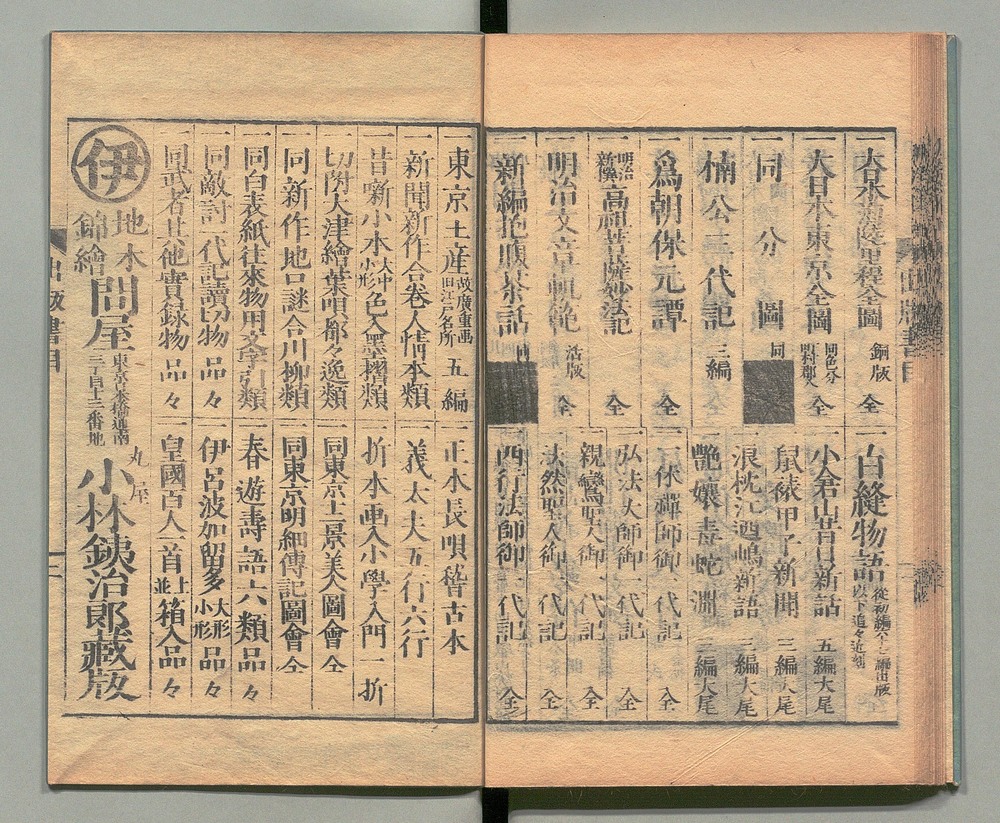 一大日本國郡里程全圖 銅版 全
一大日本東京全圖 同色分 町村郡入 全
一同 分 圖 同
一楠公三代記 三編
一爲朝保元譚 全
一明治新撰高祖菩薩妙法記 全
一明治文章軌範 活版 全
一新編抱腹茶話
一白縫物語 従初編 編出版 以下追々近刻
一小倉山昔日新話 五編大尾
一鼠裱甲子新聞 三編大尾
浪枕江の嶋新語 三編大尾
艶孃毒蛇淵 三編大尾
一休禪師御一代記 全
弘法大師御一代記 全
親鸞聖人御一代記 全
法然聖人御一代記 全
西行法師御一代記 全
一東京土産 故廣重画 旧江戸名所 五編
一新聞新作合巻人情本類
一昔噺小本 大中小形 色入墨摺類
一切附大津繪葉唄都々逸類
一同新作地口謎合川柳類
一同白表紙往來物用文字引類
一同敵討一代記讀切物 品々
一同武者其他實録物 品々
一正本長唄稽古本
一義太夫五行六行
一折本画入小學入門 一折
一同東京十二景美人圖會 全
一同東京明細傳記圖會 全
一春遊壽語六類 品々
一伊呂波加留多 大形小形 品々
一皇國百人一首 上並 箱入品々
伊
地本
錦繪
問屋
東京日本橋通南
三丁目十三番地
丸屋
小林鉄治郎藏版
出版書目